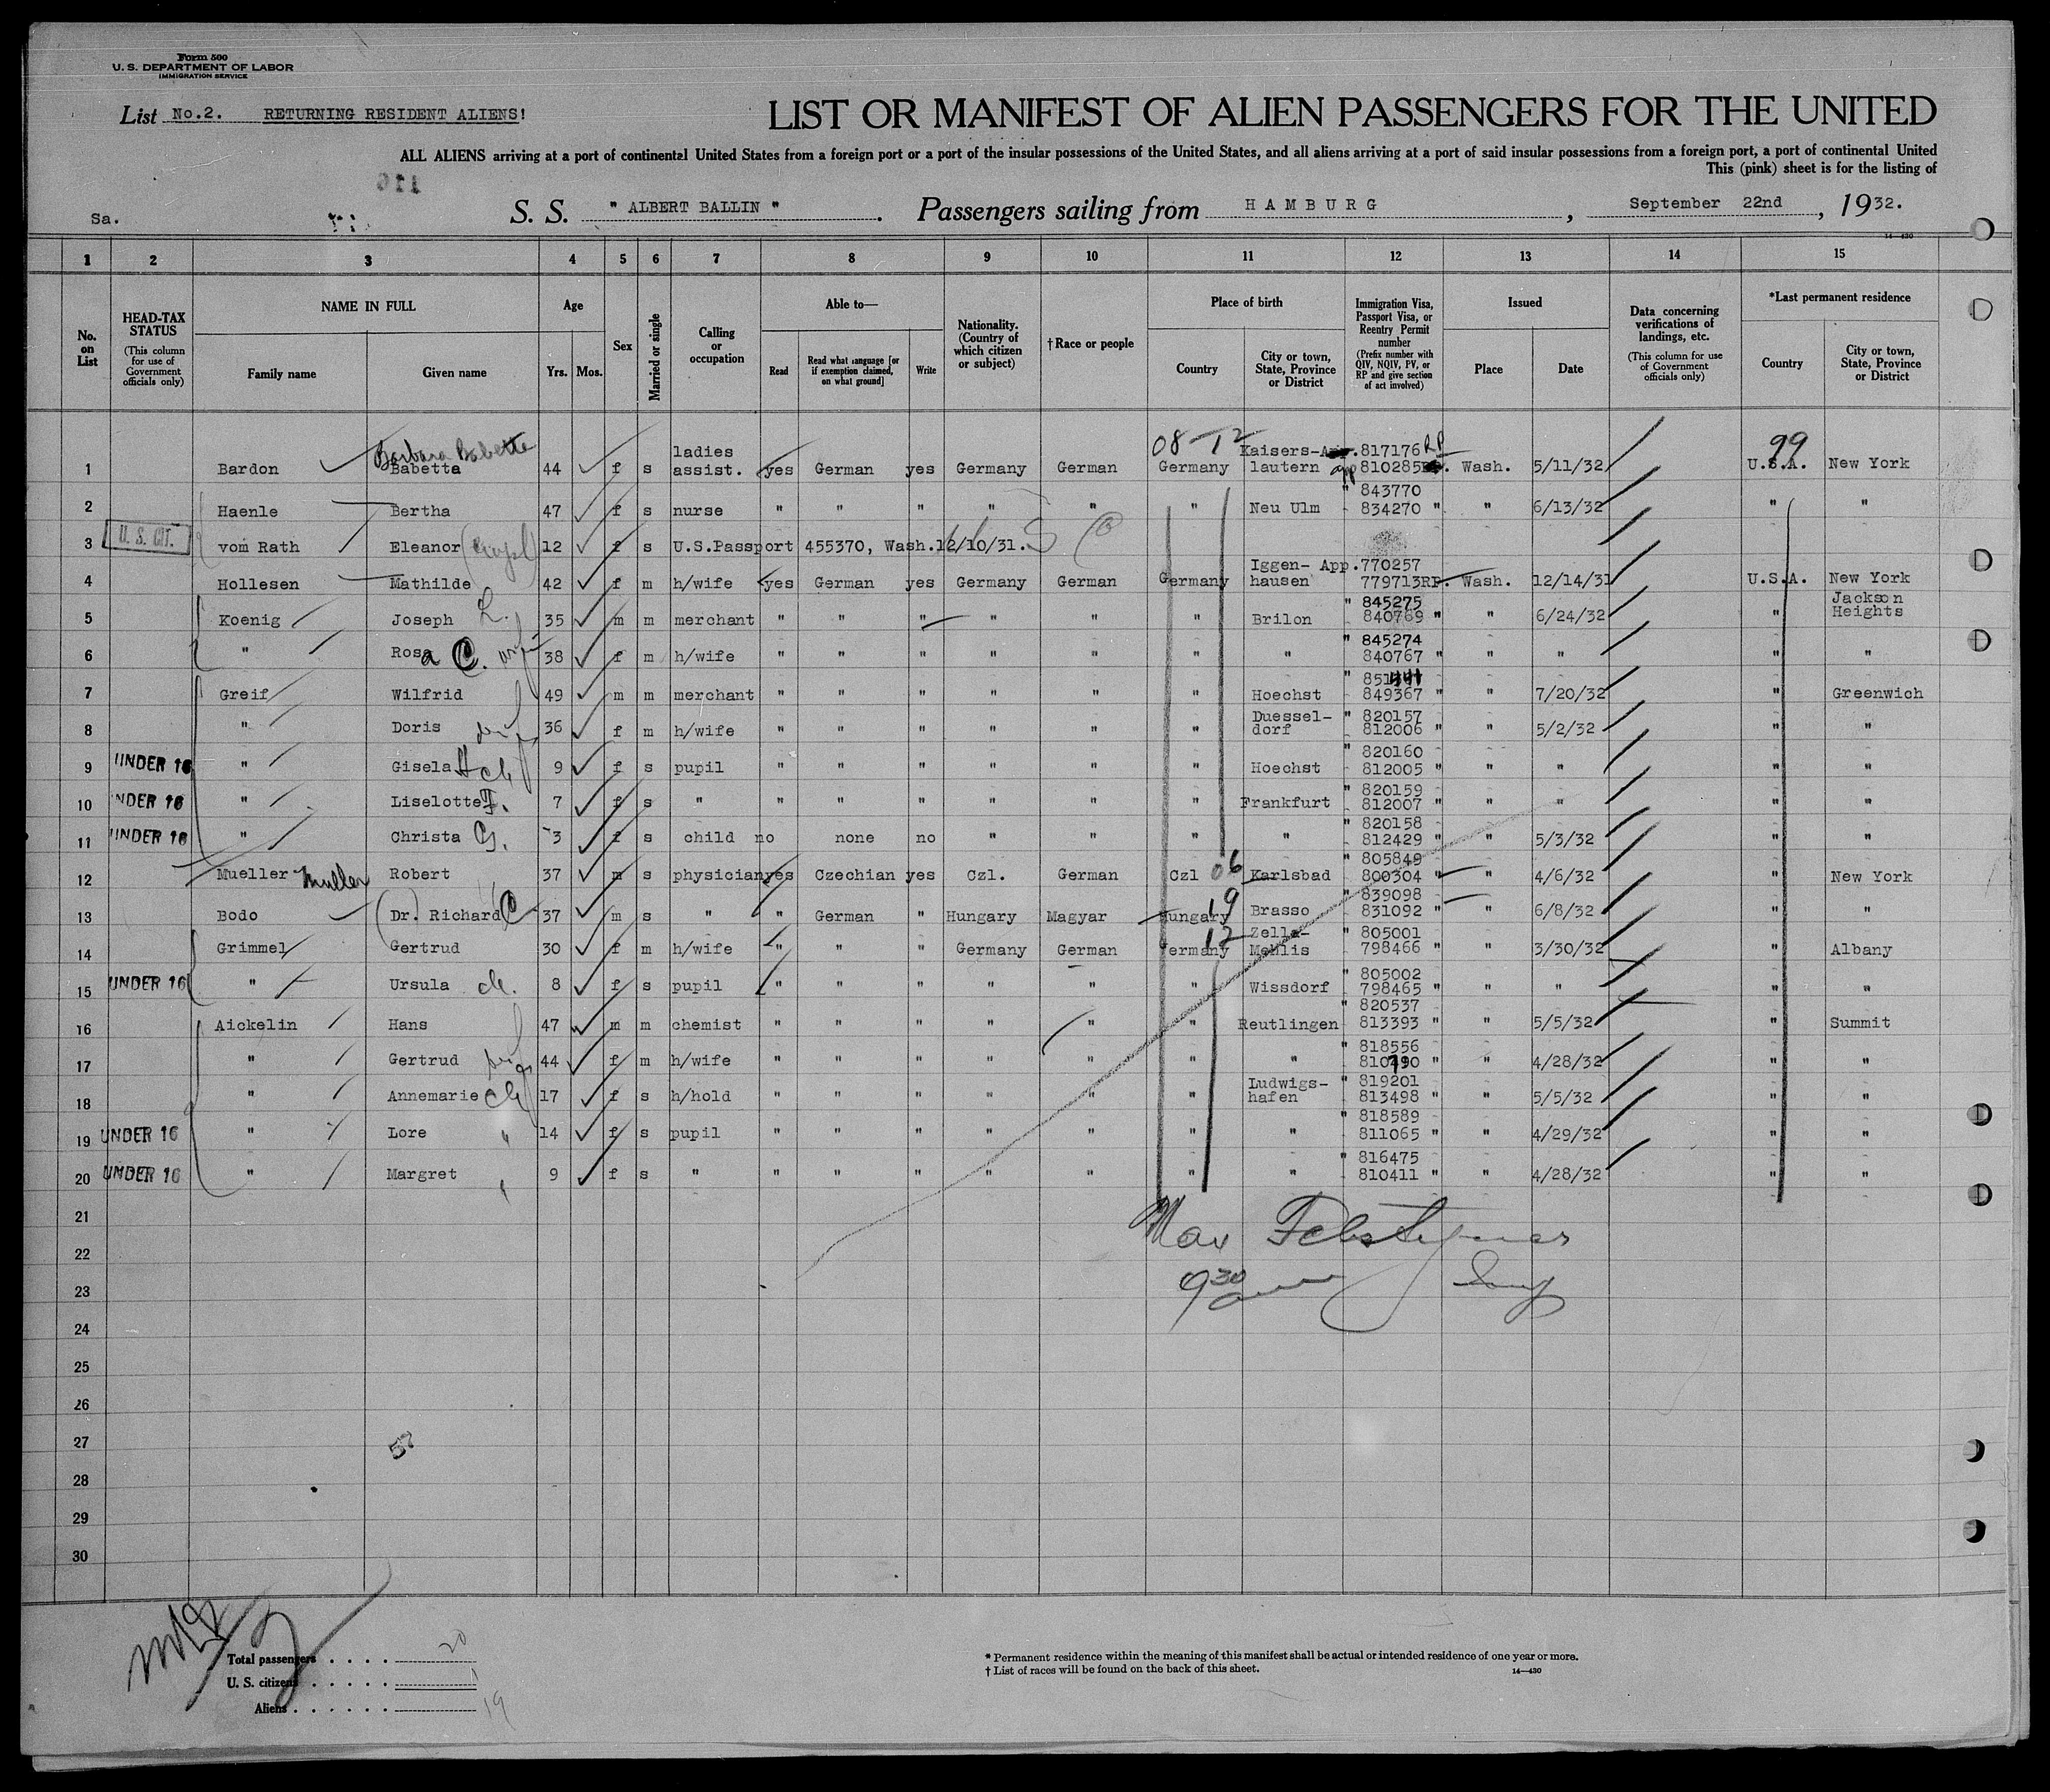 Form 500
U. S. DEPARTMENT OF LABOR
IMMIGRATION SERVICE
List No.2. RETURNING RESIDENT ALIENS!
LIST OR MANIFEST OF ALIEN PASSENGERS FOR THE UNITED
ALL ALIENS arriving at a port of continental United States from a foreign port or a port of the insular possessions of the United States, and all aliens arriving at a port of said insular possessions from a foreign port, a port of continental United
This (pink) sheet is for the listing of
Sa. S. S. " ALBERT BALLIN ". Passengers sailing from HAMBURG, September 22nd, 1932.
14-430
1 2 3 4 5 6 7 8 9 10 11 12 13 14 15
No. on List
HEAD-TAX STATUS (This column for use of Government officials only)
NAME IN FULL Family name Given name
Age Yrs. Mos.
Sex
Married or single
Calling or occupation
Able to— Read Read what language [or if exemption claimed, on what ground] Write
Nationality. (Country of which citizen or subject)
†Race or people
Place of birth Country City or town, State, Province or District
Immigration Visa, Passport Visa, or Reentry Permit number (Prefix number with QIV, NQIV, PV, or RP and give section of act involved)
Issued Place Date
Data concerning verifications of landings, etc. (This column for use of Government officials only)
*Last permanent residence Country City or town, State, Province or District
Barbara Babette 08-12 99
1 Bardon Babetta 44 f s ladies assist. yes German yes Germany German Germany Kaiserslautern App. 817176 RP 810285 Wash. 5/11/32 U.S.A. New York
2 Haenle Bertha 47 f s nurse " " " " " " Neu Ulm " 843770 834270 " " 6/13/32 " "
3 U. S. CIT. vom Rath Eleanor 12 f s U.S.Passport 455370, Wash. 12/10/31.
4 Hollesen Mathilde 42 f m h/wife yes German yes Germany German Germany Iggenhausen App. 770257 779713RP. Wash. 12/14/31 U.S.A. New York
5 Koenig Joseph L. 35 m m merchant " " " " " " Brilon " 845275 840769 " " 6/24/32 " Jackson Heights
6 " Rosa C. 38 f m h/wife " " " " " " " " 845274 840767 " " " " "
7 Greif Wilfrid 49 m m merchant " " " " " " Hoechst " 849367 " " 7/20/32 " Greenwich
8 " Doris 36 f m h/wife " " " " " " Duesseldorf " 820157 812006 " " 5/2/32 " "
9 UNDER 16 " Gisela H ch 9 f s pupil " " " " " " Hoechst " 820160 812005 " " " " "
10 UNDER 16 " Liselotte F. 7 f s " " " " " " " Frankfurt " 820159 812007 " " " " "
11 UNDER 16 " Christa G. 3 f s child no none no " " " " " 820158 812429 " " 5/3/32 " "
12 Mueller Muller Robert 37 m s physician yes Czechian yes Czl. German Czl 06 Karlsbad " 805849 800304 " " 4/6/32 " New York
13 Bodo (Dr.) Richard C 37 m s " " German " Hungary Magyar Hungary 19 Brasso " 839098 831092 " " 6/8/32 " "
14 Grimmel Gertrud 30 f m h/wife " " " Germany German Germany 12 Zella-Mehlis " 805001 798466 " " 3/30/32 " Albany
15 UNDER 16 " Ursula ch. 8 f s pupil " " " " " " Wissdorf " 805002 798465 " " " " "
16 Aickelin Hans 47 m m chemist " " " " " " Reutlingen " 820537 813393 " " 5/5/32 " Summit
17 " Gertrud 44 f m h/wife " " " " " " " " 818556 810790 " " 4/28/32 " "
18 " Annemarie ch 17 f s h/hold " " " " " " Ludwigshafen " 819201 813498 " " 5/5/32 " "
19 UNDER 16 " Lore " 14 f s pupil " " " " " " " " 818589 811065 " " 4/29/32 " "
20 UNDER 16 " Margret " 9 f s " " " " " " " " " 816475 810411 " " 4/28/32 " "
21
Max
22
9 30
23
24
25
26
27
28
29
30
Total passengers 20
U. S. citizens 1
Aliens 19
* Permanent residence within the meaning of this manifest shall be actual or intended residence of one year or more.
† List of races will be found on the back of this sheet.
14—430